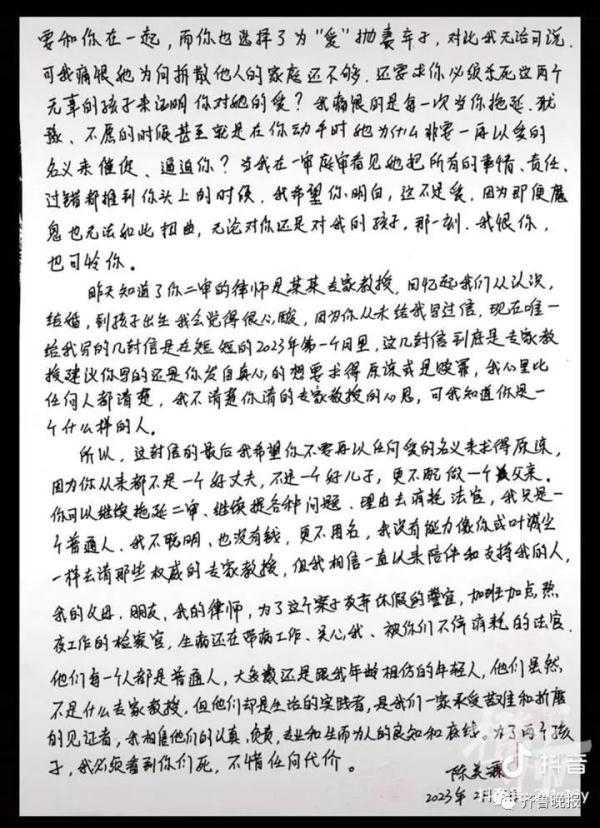 要和你在一起，而你也选择了为“爱”抛妻弃子，对此我无话可说.
可我痛恨她为何拆散他人的家庭还不够.还要求你必须杀死这两个
无辜的孩子来证明你对她的爱？我痛恨的是每一次当你拖延.犹
豫、不愿的时候甚至就是在你动手时她为什么非要一再以爱的
名义来催促、逼迫你？当我在一审庭审看见她把所有的事情、责任、
过错都推到你头上的时候，我希望你明白，这不是爱，因为即便魔
鬼也无法如此扭曲，无论对你还是对我的孩子。那一刻.我恨你，
也可怜你。
昨天知道了你二审的律师是某某专家教授，回忆起我们从认识，
结婚，到孩子出生我会觉得很心酸，因为你从未给我写过信，现在唯一
给我写的几封信是在短短的2023年第一个月里，这几封信到底是专家教
授建议你写的还是你发自真心的想要求得原谅或是赎罪，我心里比
任何人都清楚，我不清楚你请的专家教授的心思，可我知道你是一
个什么样的人。
所以，这封信的最后我希望你不要再以任何爱的名义来求得原谅，
因为你从来都不是一个好丈夫，不是一个好儿子，更不配做一个父亲。
你可以继续拖延二审、继续提各种问题、理由去消耗法官，我只是一
个普通人、我不聪明、也没有钱，更不用名，我没有能力像你或叶诚尘
一样去请那些权威的专家教授，但我相信一直以来陪伴和支持我的人，
我的父母.朋友，我的律师，为了这个案子放弃休假的警官，加班加点，熬
夜工作的检察官，生病还在带病工作、关心我、被你们不停消耗的法官.
他们每一个人都是普通人，大多数还是跟我年龄相仿的年轻人，他们虽然
不是什么专家教授，但他们却是生活的实践者，是我们一家承受苦难和折磨
的见证者，我相信他们的认真，负责，专业和生而为人的良知和底线。为了两个孩
子，我必须看到你们死，不惜任何代价。
陈美霖
2023年2月
抖音
齐鲁晚报